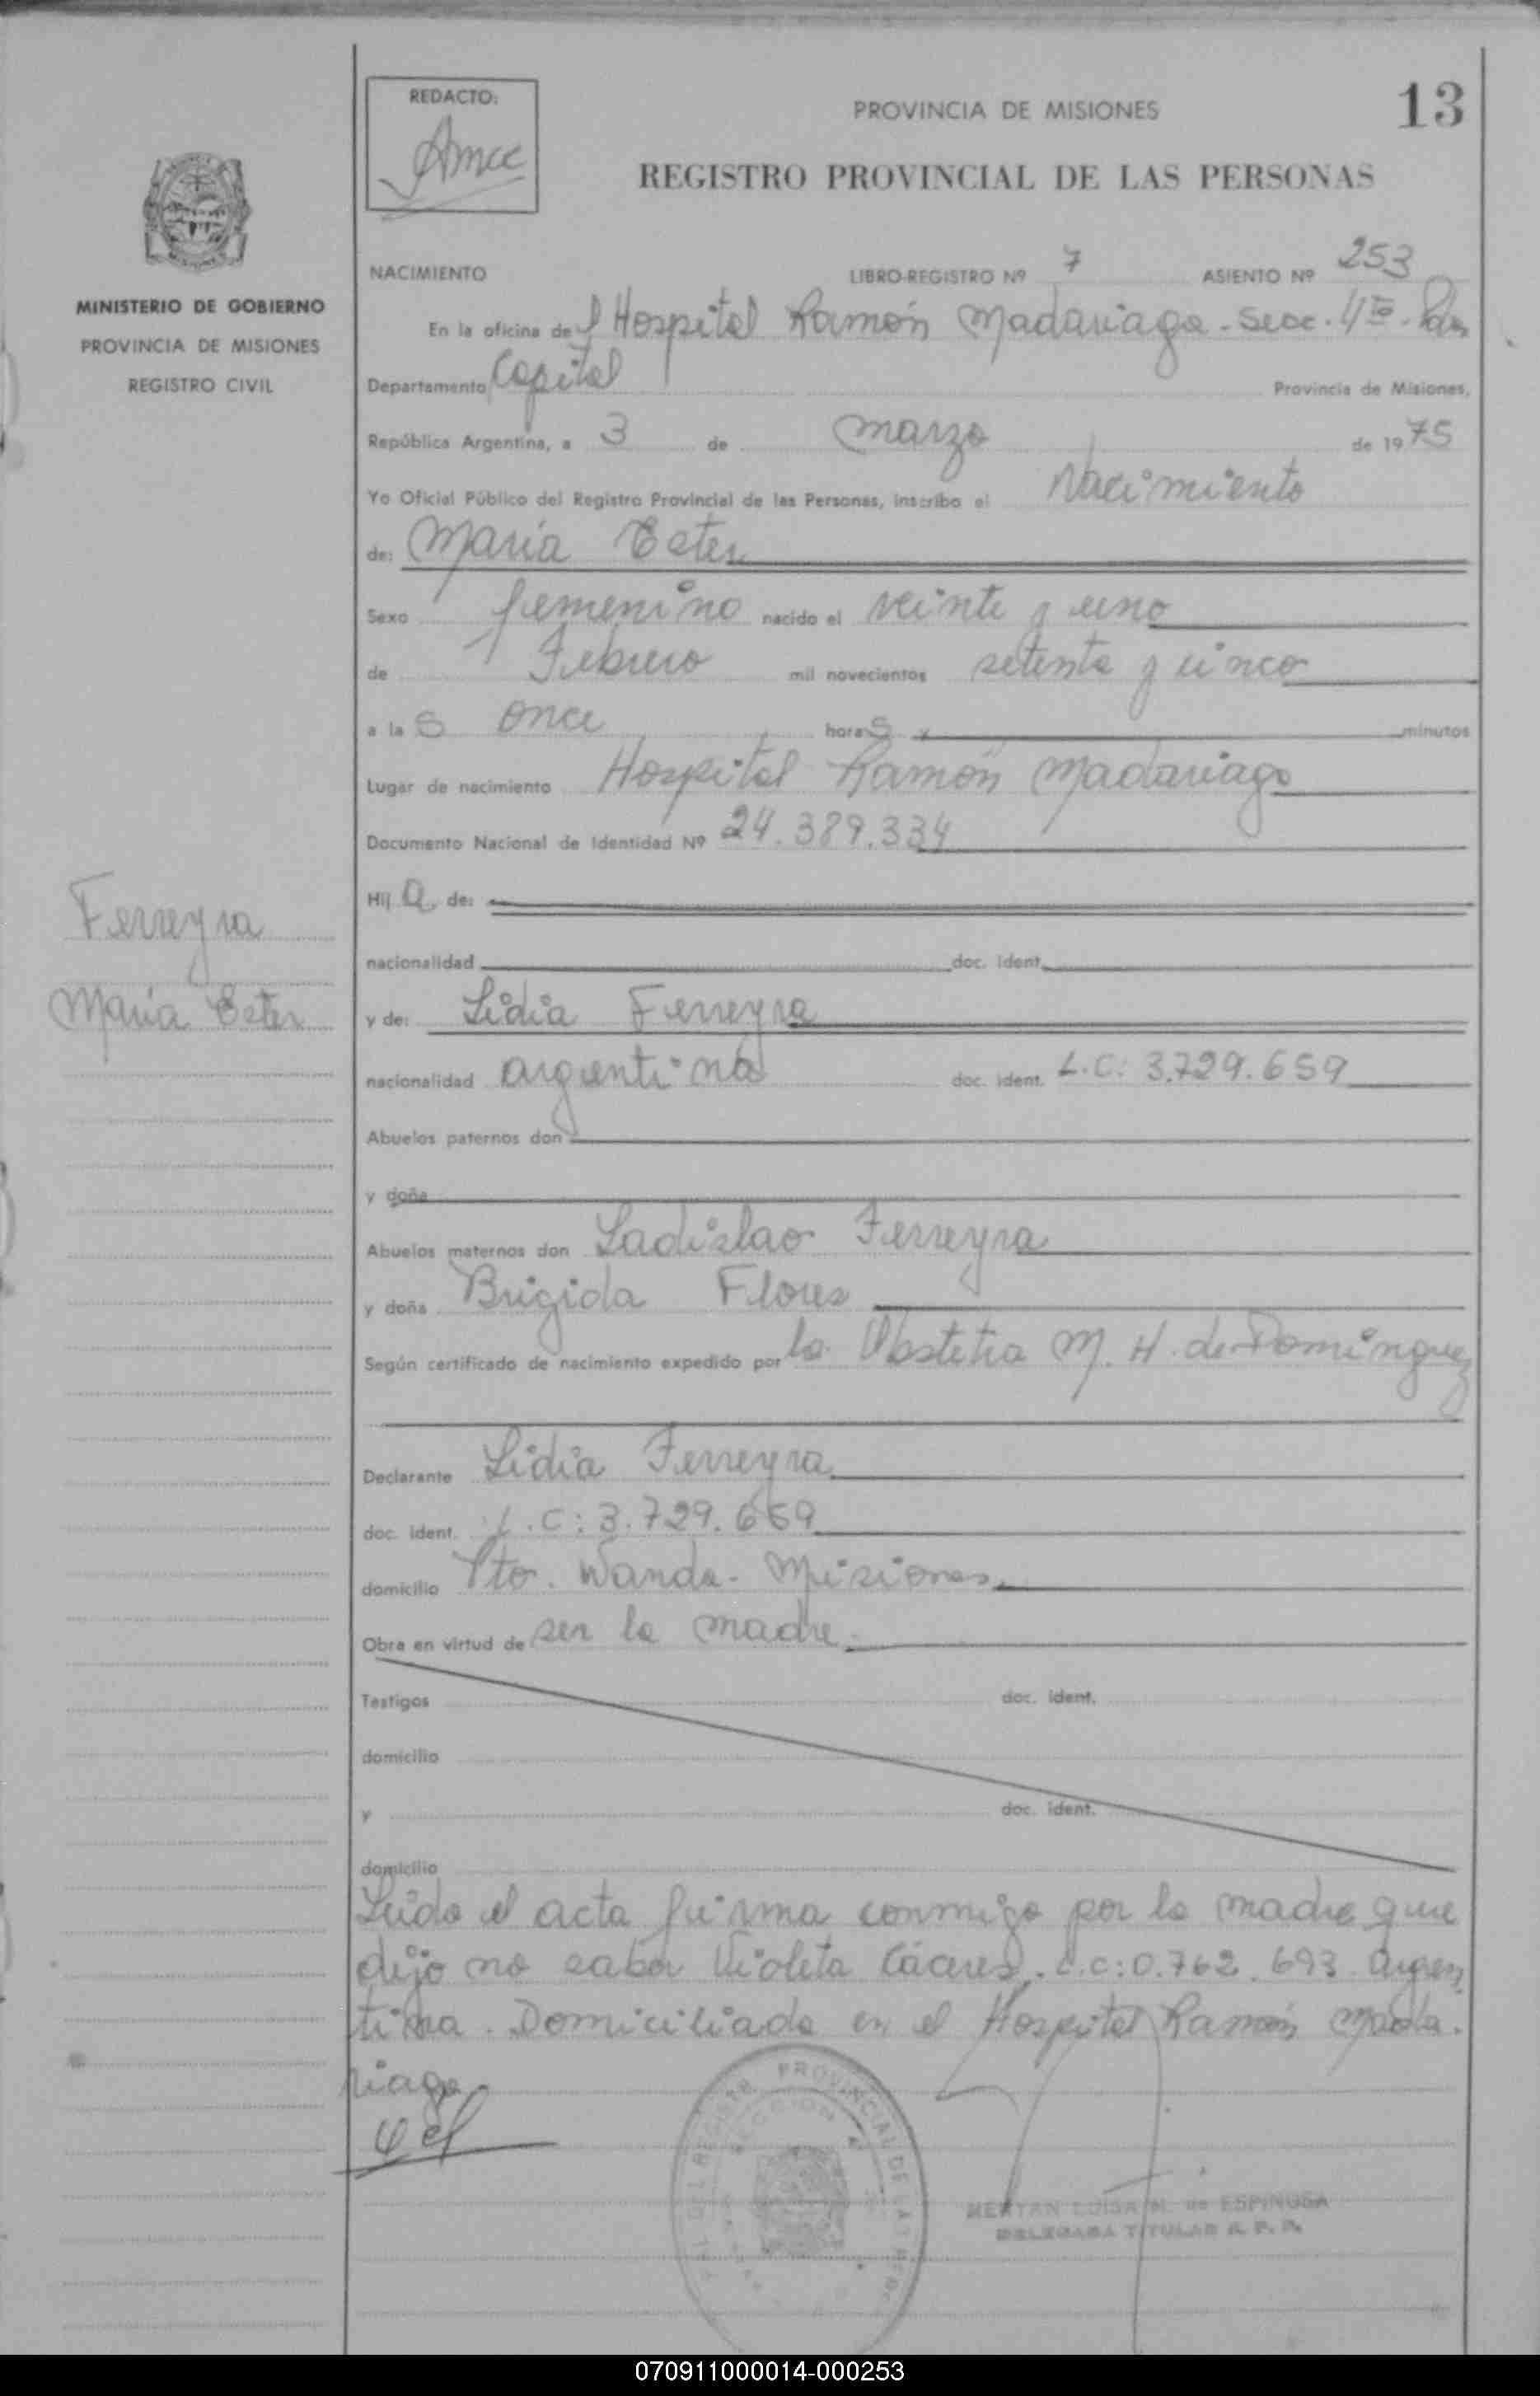 REDACTO:
PROVINCIA DE MISIONES
13
REGISTRO PROVINCIAL DE LAS PERSONAS
MINISTERIO DE GOBIERNO
PROVINCIA DE MISIONES
REGISTRO CIVIL
NACIMIENTO LIBRO-REGISTRO Nº 7 ASIENTO Nº 253
En la oficina del Hospital Ramón Madariaga - Secc. 4ta -
Departamento Capital Provincia de Misiones,
República Argentina, a 3 de marzo de 1975
Yo Oficial Público del Registro Provincial de las Personas, inscribo el Nacimiento
de: María Ester
Sexo femenino nacido el veinte y uno
de Febrero mil novecientos setenta y cinco
a la s once horas y minutos
Lugar de nacimiento Hospital Ramón Madariaga
Documento Nacional de Identidad Nº 24.389.334
Hij a de:
nacionalidad doc. ident.
Ferreyra
María Ester
y de: Lidia Ferreyra
nacionalidad argentina doc. ident. L.C: 3.729.659
Abuelos paternos don
y doña
Abuelos maternos don Ladislao Ferreyra
y doña Brigida Flores
Según certificado de nacimiento expedido por la Obstetra M. H. de Dominguez
Declarante Lidia Ferreyra
doc. ident. L.C: 3.729.659
domicilio Pto. Wanda - Misiones
Obra en virtud de ser la madre
Testigos doc. ident.
domicilio
y doc. ident.
domicilio
Leida el acta firma conmigo por la madre que
dijo no saber Violeta Cáceres. L.C: 0.762.693 Argen
tina. Domiciliada en el Hospital Ramón Mada
riaga
PROVINCIAL DE LAS
SECCION
LUISA M. de ESPINOSA
DELEGADA TITULAR R. P. P.
070911000014-000253